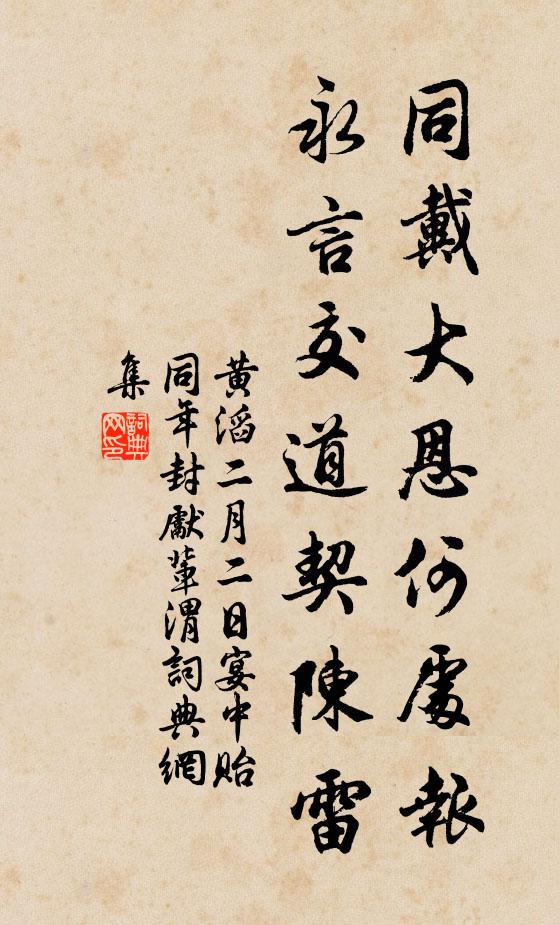 同戴大恩何處報
永言交道契陳雷
黃滔二月二日宴中貽
同年封獻輩渭詞典網
集
詞典
网印